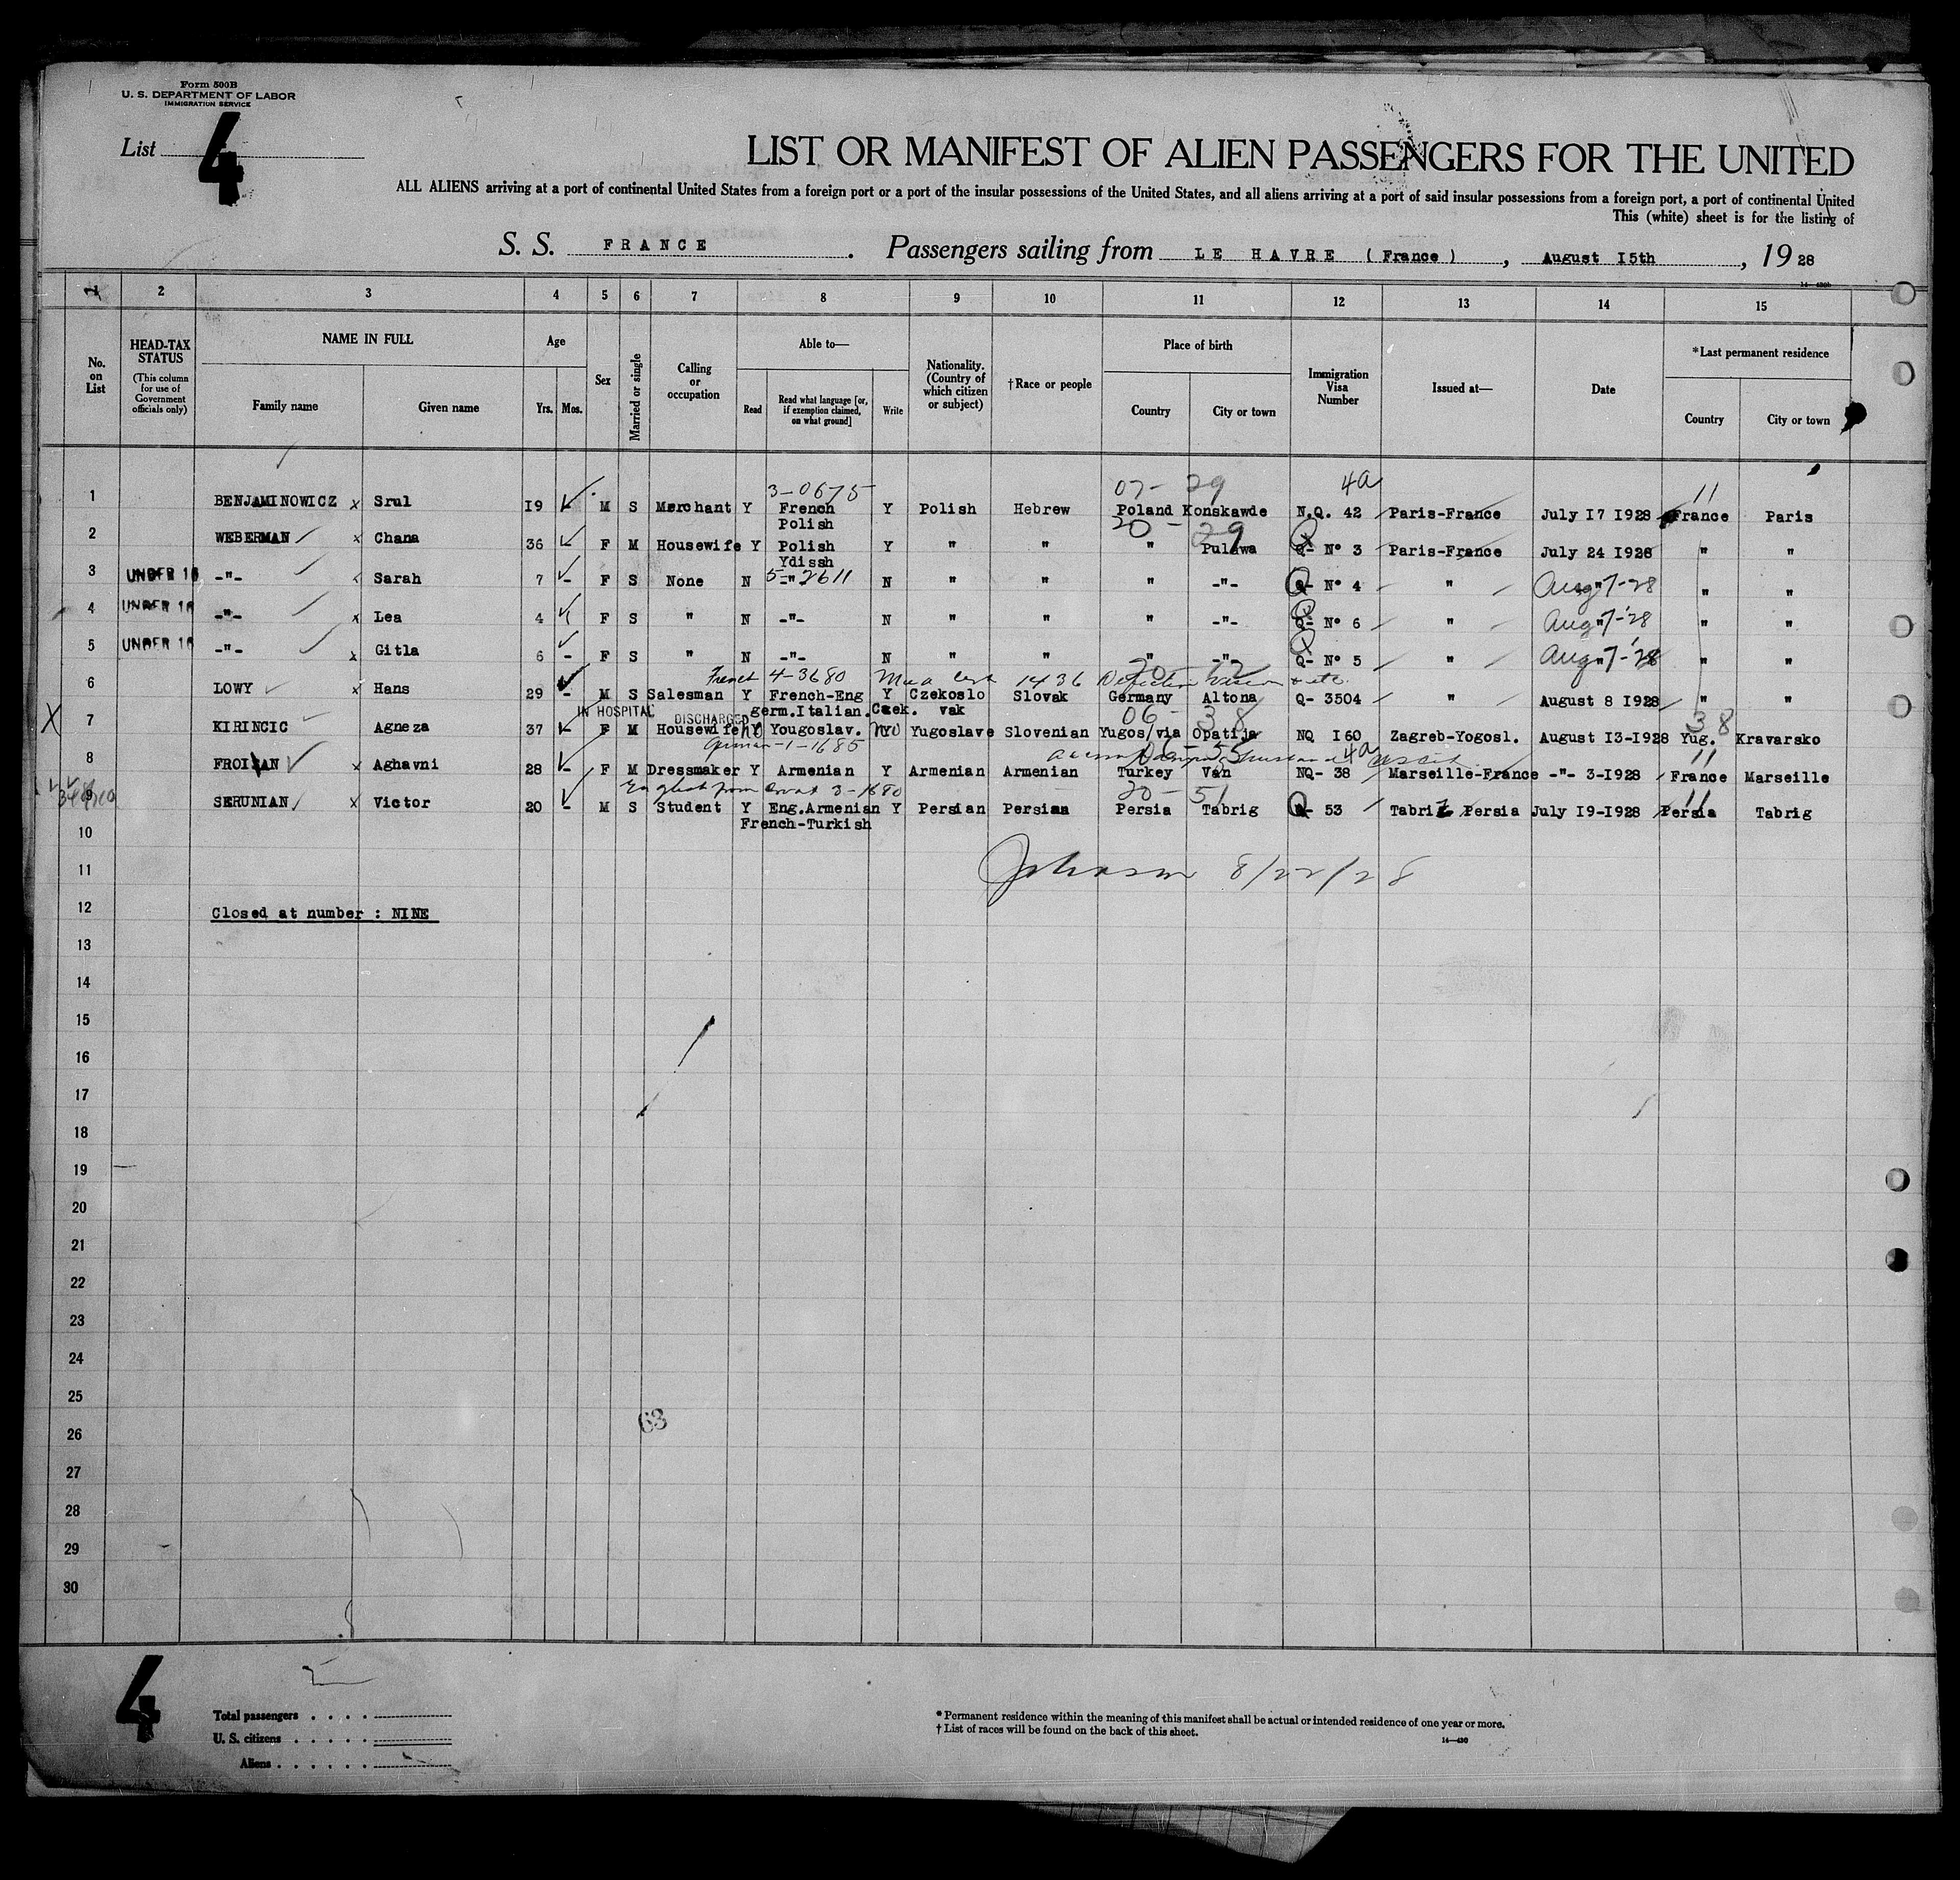 Form 500B
U. S. DEPARTMENT OF LABOR
IMMIGRATION SERVICE
List 4
LIST OR MANIFEST OF ALIEN PASSENGERS FOR THE UNITED
ALL ALIENS arriving at a port of continental United States from a foreign port or a port of the insular possessions of the United States, and all aliens arriving at a port of said insular possessions from a foreign port, a port of continental United
This (white) sheet is for the listing of
S. S. FRANCE. Passengers sailing from LE HAVRE (France), August I5th, 19 28
1 2 3 4 5 6 7 8 9 10 11 12 13 14 15
No. on List
HEAD-TAX STATUS (This column for use of Government officials only)
NAME IN FULL
Family name Given name
Age
Yrs. Mos.
Sex
Married or single
Calling or occupation
Able to—
Read Read what language [or, if exemption claimed, on what ground] Write
Nationality. (Country of which citizen or subject)
†Race or people
Place of birth
Country City or town
Immigration Visa Number
Issued at—
Date
*Last permanent residence
Country City or town
3-0675 07- 29 4a 11
1 BENJAMINOWICZ x Srul I9 M S Merchant Y French Y Polish Hebrew Poland Konskawde N.Q. 42 Paris-France July I7 I928 France Paris
Polish 20 - 29
2 WEBERMAN x Chana 36 - F M Housewife Y Polish Y " " " Pulawa Q- N° 3 Paris-France July 24 I928 " "
Ydissh
5-2611
3 UNDER 16 -"- Sarah 7 - F S None N -"- N " " " -"- Q- N° 4 " Aug 7-28 " "
4 UNDER 16 -"- x Lea 4 F S " N -"- N " " " -"- Q- N° 6 " Aug 7-'28 " "
5 UNDER 16 -"- x Gitla 6 - F S " N -"- N " " " -"- Q- N° 5 " Aug 7-'28 " "
French 4-3680 1436 20 12
6 LOWY x Hans 29 - M S Salesman Y French-Eng Y Czekoslo Slovak Germany Altona Q- 3504 " August 8 I928 " "
IN HOSPITAL DISCHARGED germ.Italian.Czek. vak 06 - 38 38
X 7 KIRINCIC Agneza 37 - F M Housewife no Yougoslav. no Yugoslave Slovenian Yugos/via Opatija NQ I60 Zagreb-Yogosl. August I3-I928 Yug. Kravarsko
1-1685 55 4a 11
8 FROIXAN x Aghavni 28 - F M Dressmaker Y Armenian Y Armenian Armenian Turkey Van NQ- 38 Marseille-France -"- 3-I928 France Marseille
English from 3-1680 20 - 51 11
9 SERUNIAN x Victor 20 - M S Student Y Eng.Armenian Y Persian Persian Persia Tabrig Q- 53 Tabriz Persia July I9-I928 Persia Tabrig
French-Turkish
10
Johnson 8/22/28
11
12 Closed at number : NINE
13
14
15
16
17
18
19
20
21
22
23
24
25
63
26
27
28
29
30
4
Total passengers
U. S. citizens
Aliens
* Permanent residence within the meaning of this manifest shall be actual or intended residence of one year or more.
† List of races will be found on the back of this sheet.
14—430